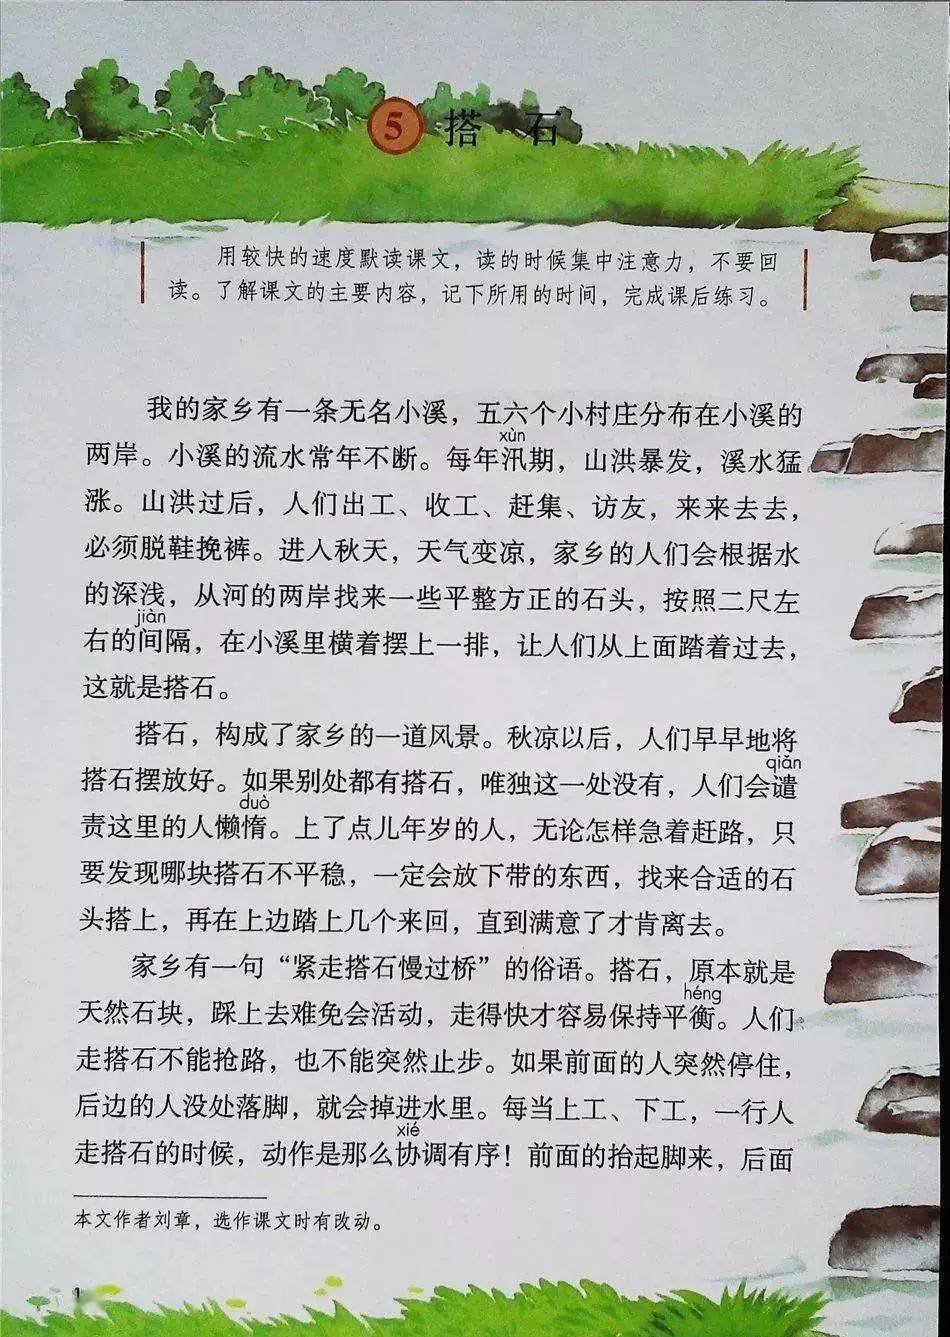 5 搭 石
用较快的速度默读课文，读的时候集中注意力，不要回
读。了解课文的主要内容，记下所用的时间，完成课后练习。
我的家乡有一条无名小溪，五六个小村庄分布在小溪的
xùn
两岸。小溪的流水常年不断。每年汛期，山洪暴发，溪水猛
涨。山洪过后，人们出工、收工、赶集、访友，来来去去，
必须脱鞋挽裤。进入秋天，天气变凉，家乡的人们会根据水
的深浅，从河的两岸找来一些平整方正的石头，按照二尺左
jiàn
右的间隔，在小溪里横着摆上一排，让人们从上面踏着过去，
这就是搭石。
搭石，构成了家乡的一道风景。秋凉以后，人们早早地将
qiǎn
搭石摆放好。如果别处都有搭石，唯独这一处没有，人们会谴
duò
责这里的人懒惰。上了点儿年岁的人，无论怎样急着赶路，只
要发现哪块搭石不平稳，一定会放下带的东西，找来合适的石
头搭上，再在上边踏上几个来回，直到满意了才肯离去。
家乡有一句“紧走搭石慢过桥”的俗语。搭石，原本就是
héng
天然石块，踩上去难免会活动，走得快才容易保持平衡。人们
走搭石不能抢路，也不能突然止步。如果前面的人突然停住，
后边的人没处落脚，就会掉进水里。每当上工、下工，一行人
xié
走搭石的时候，动作是那么协调有序！前面的抬起脚来，后面
本文作者刘章，选作课文时有改动。
1